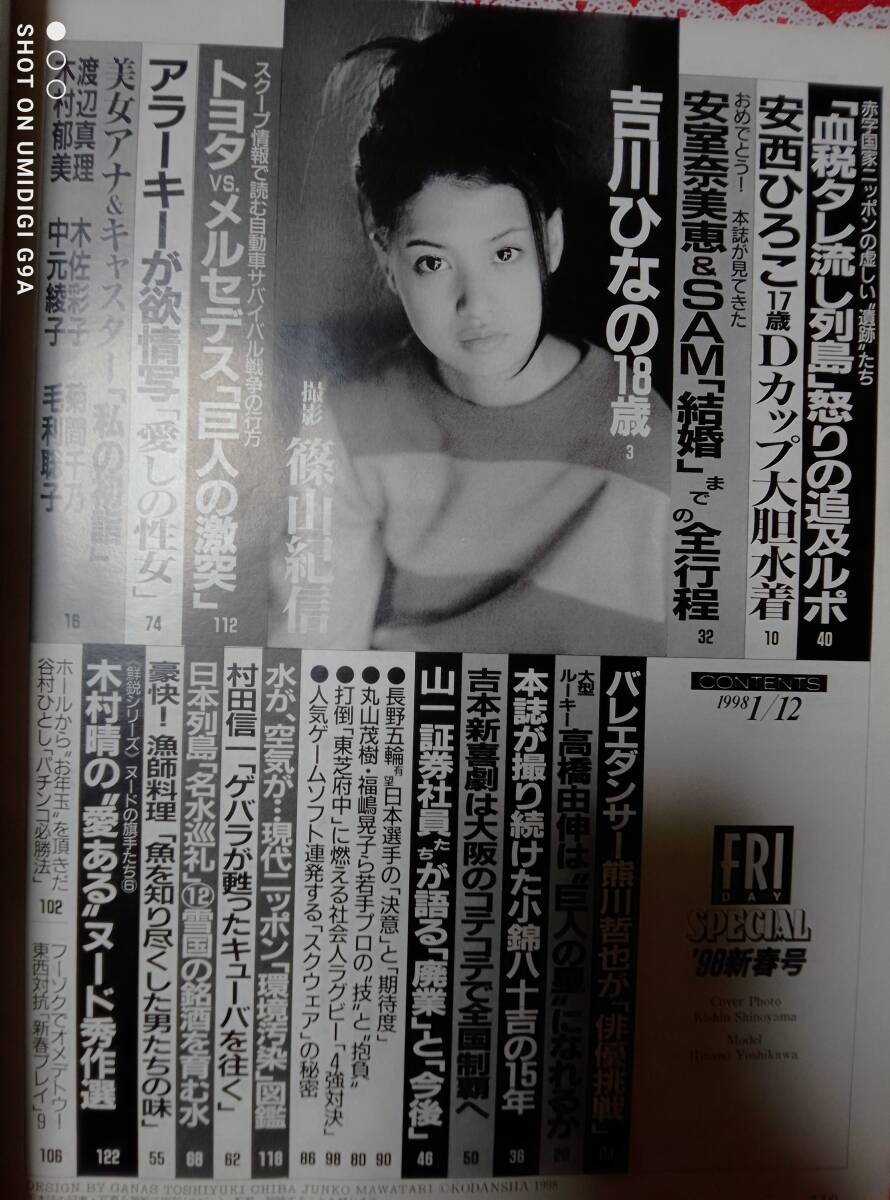 赤字国家ニッポンの虚しい“遺跡”たち
「血税タレ流し列島」怒りの追及ルポ
40
安西ひろこ17歳Dカップ大胆水着
10
おめでとう! 本誌が見てきた
安室奈美恵&SAM「結婚」までの全行程
32
吉川ひなの18歳
3
撮影 篠山紀信
スクープ情報で読む自動車サバイバル戦争の行方
トヨタVS.メルセデス「巨人の激突」
112
アラーキーが欲情写「愛しの性女」
74
美女アナ&キャスター「私の初詣」
渡辺真理 木佐彩子 菊間千乃
木村郁美 中元綾子 毛利聡子
16
CONTENTS
1998 1/12
FRI
DAY
SPECIAL
'98新春号
Cover Photo
Kishin Shinoyama
Model
Hinano Yoshikawa
バレエダンサー熊川哲也が「俳優挑戦」
大型ルーキー高橋由伸は“巨人の星”になれるか
本誌が撮り続けた小錦八十吉の15年
36
吉本新喜劇は大阪のコテコテで全国制覇へ
50
山一証券社員たちが語る「廃業」と「今後」
46
●長野五輪有望日本選手の「決意」と「期待度」
90
●丸山茂樹・福嶋晃子ら若手プロの“技”と“抱負”
80
●打倒「東芝府中」に燃える社会人ラグビー「4強対決」
98
●人気ゲームソフト連発する「スクウェア」の秘密
86
水が、空気が…現代ニッポン「環境汚染」図鑑
118
村田信一「ゲバラが甦ったキューバを往く」
62
日本列島「名水巡礼」⑫雪国の銘酒を育む水
68
豪快!漁師料理「魚を知り尽くした男たちの味」
55
〈鮮鋭シリーズ〉ヌードの旗手たち⑥
木村晴の“愛ある”ヌード秀作選
122
ホールから“お年玉”を頂きだ
谷村ひとし「パチンコ必勝法」
102
フーゾクでオメデトウ!
東西対抗「新春プレイ」9
106
DESIGN BY GANAS TOSHIYUKI CHIBA JUNKO MAWATARI ©KODANSHA 1998
SHOT ON UMIDIGI G9A